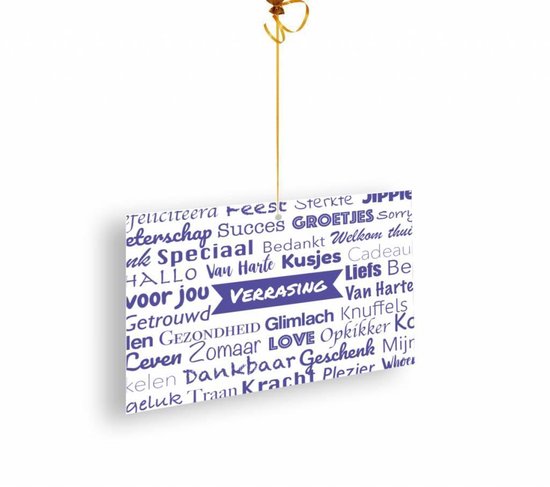 efeliciteerd Feest Sterkte Jippie
eterschap Succes GROETJES Sorry
nk Speciaal Bedankt Welkom thui
HALLO Van Harte Kusjes Cadeau
voor jou VERRASING Liefs Be
Getrouwd Van Harte
len GEZONDHEID Glimlach Knuffels
Leven Zomaar LOVE Opkikker Ko
kelen Dankbaar Geschenk Mijn
geluk Traan Kracht Plezier Whoe